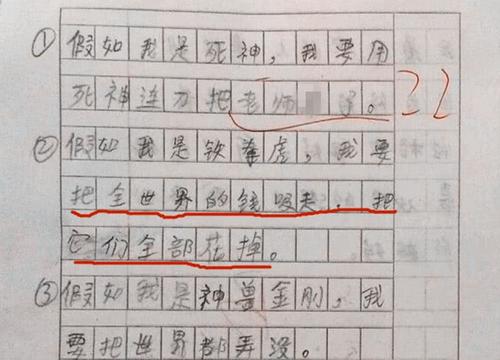 ①假如我是死神，我要用
死神连刀把老师。
②假如我是铁拳虎，我要
把全世界的钱吸，把
它们全部花掉。
③假如我是神兽金刚，我
要把世界都弄没。